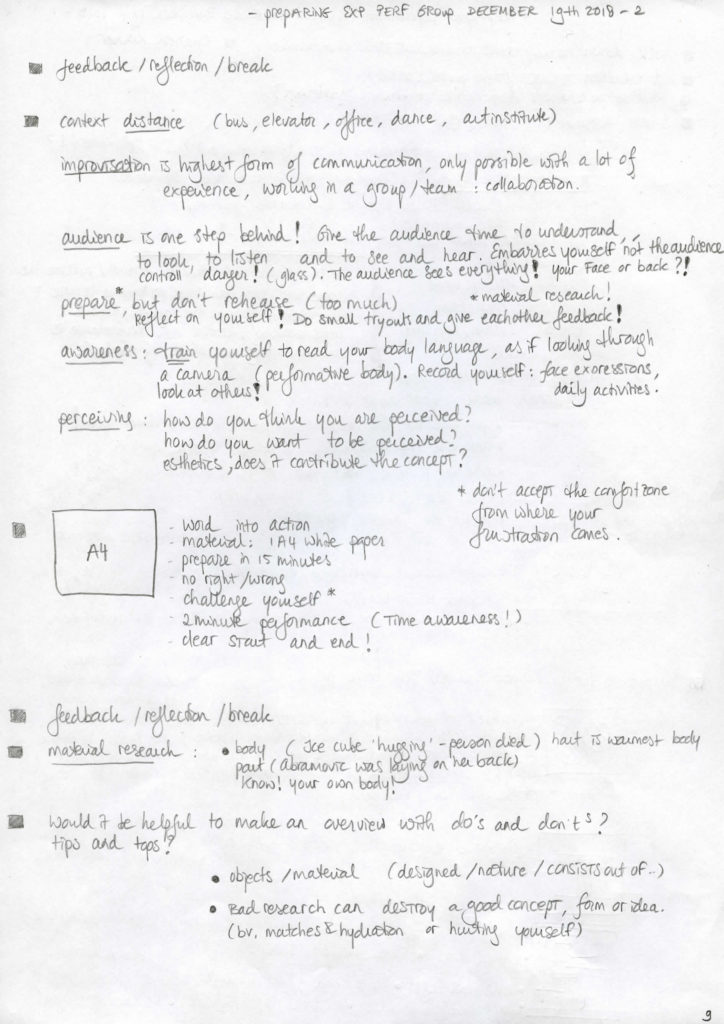 - PREPARING EXP PERF GROUP DECEMBER 19th 2018 - 2
feedback / reflection / break
context distance (bus, elevator, office, dance, art institute)
improvisation is highest form of communication, only possible with a lot of
experience, working in a group/team : collaboration.
audience is one step behind! Give the audience time to understand,
to look, to listen and to see and hear. Embarres yourself not the audience
controll, danger! (glass). The audience sees everything! your Face or back?!
prepare*, but don't rehearse (too much) *material research!
Reflect on yourself! Do small tryouts and give eachother feedback!
awareness: train yourself to read your body language, as if looking through
a camera (performative body). Record yourself: face expressions,
look at others! daily activities.
perceiving: how do you think you are perceived?
how do you want to be perceived?
esthetics, does it contribute the concept?
* don't accept the comfortzone
from where your
frustration comes.
A4
- word into action
- material: 1 A4 white paper
- prepare in 15 minutes
- no right/wrong
- challenge yourself *
- 2 minute performance (Time awareness!)
- clear start and end!
feedback / reflection / break
material research : • body (Ice cube 'hugging' - person died) hart is warmest body
part (Abramovic was laying on her back)
Know! your own body!
Would it be helpful to make an overview with do's and don'ts?
tips and tops?
• objects / material (designed / nature / consists out of..)
• Bad research can destroy a good concept, form or idea.
(bv, matches & hydration or hurting yourself)
9